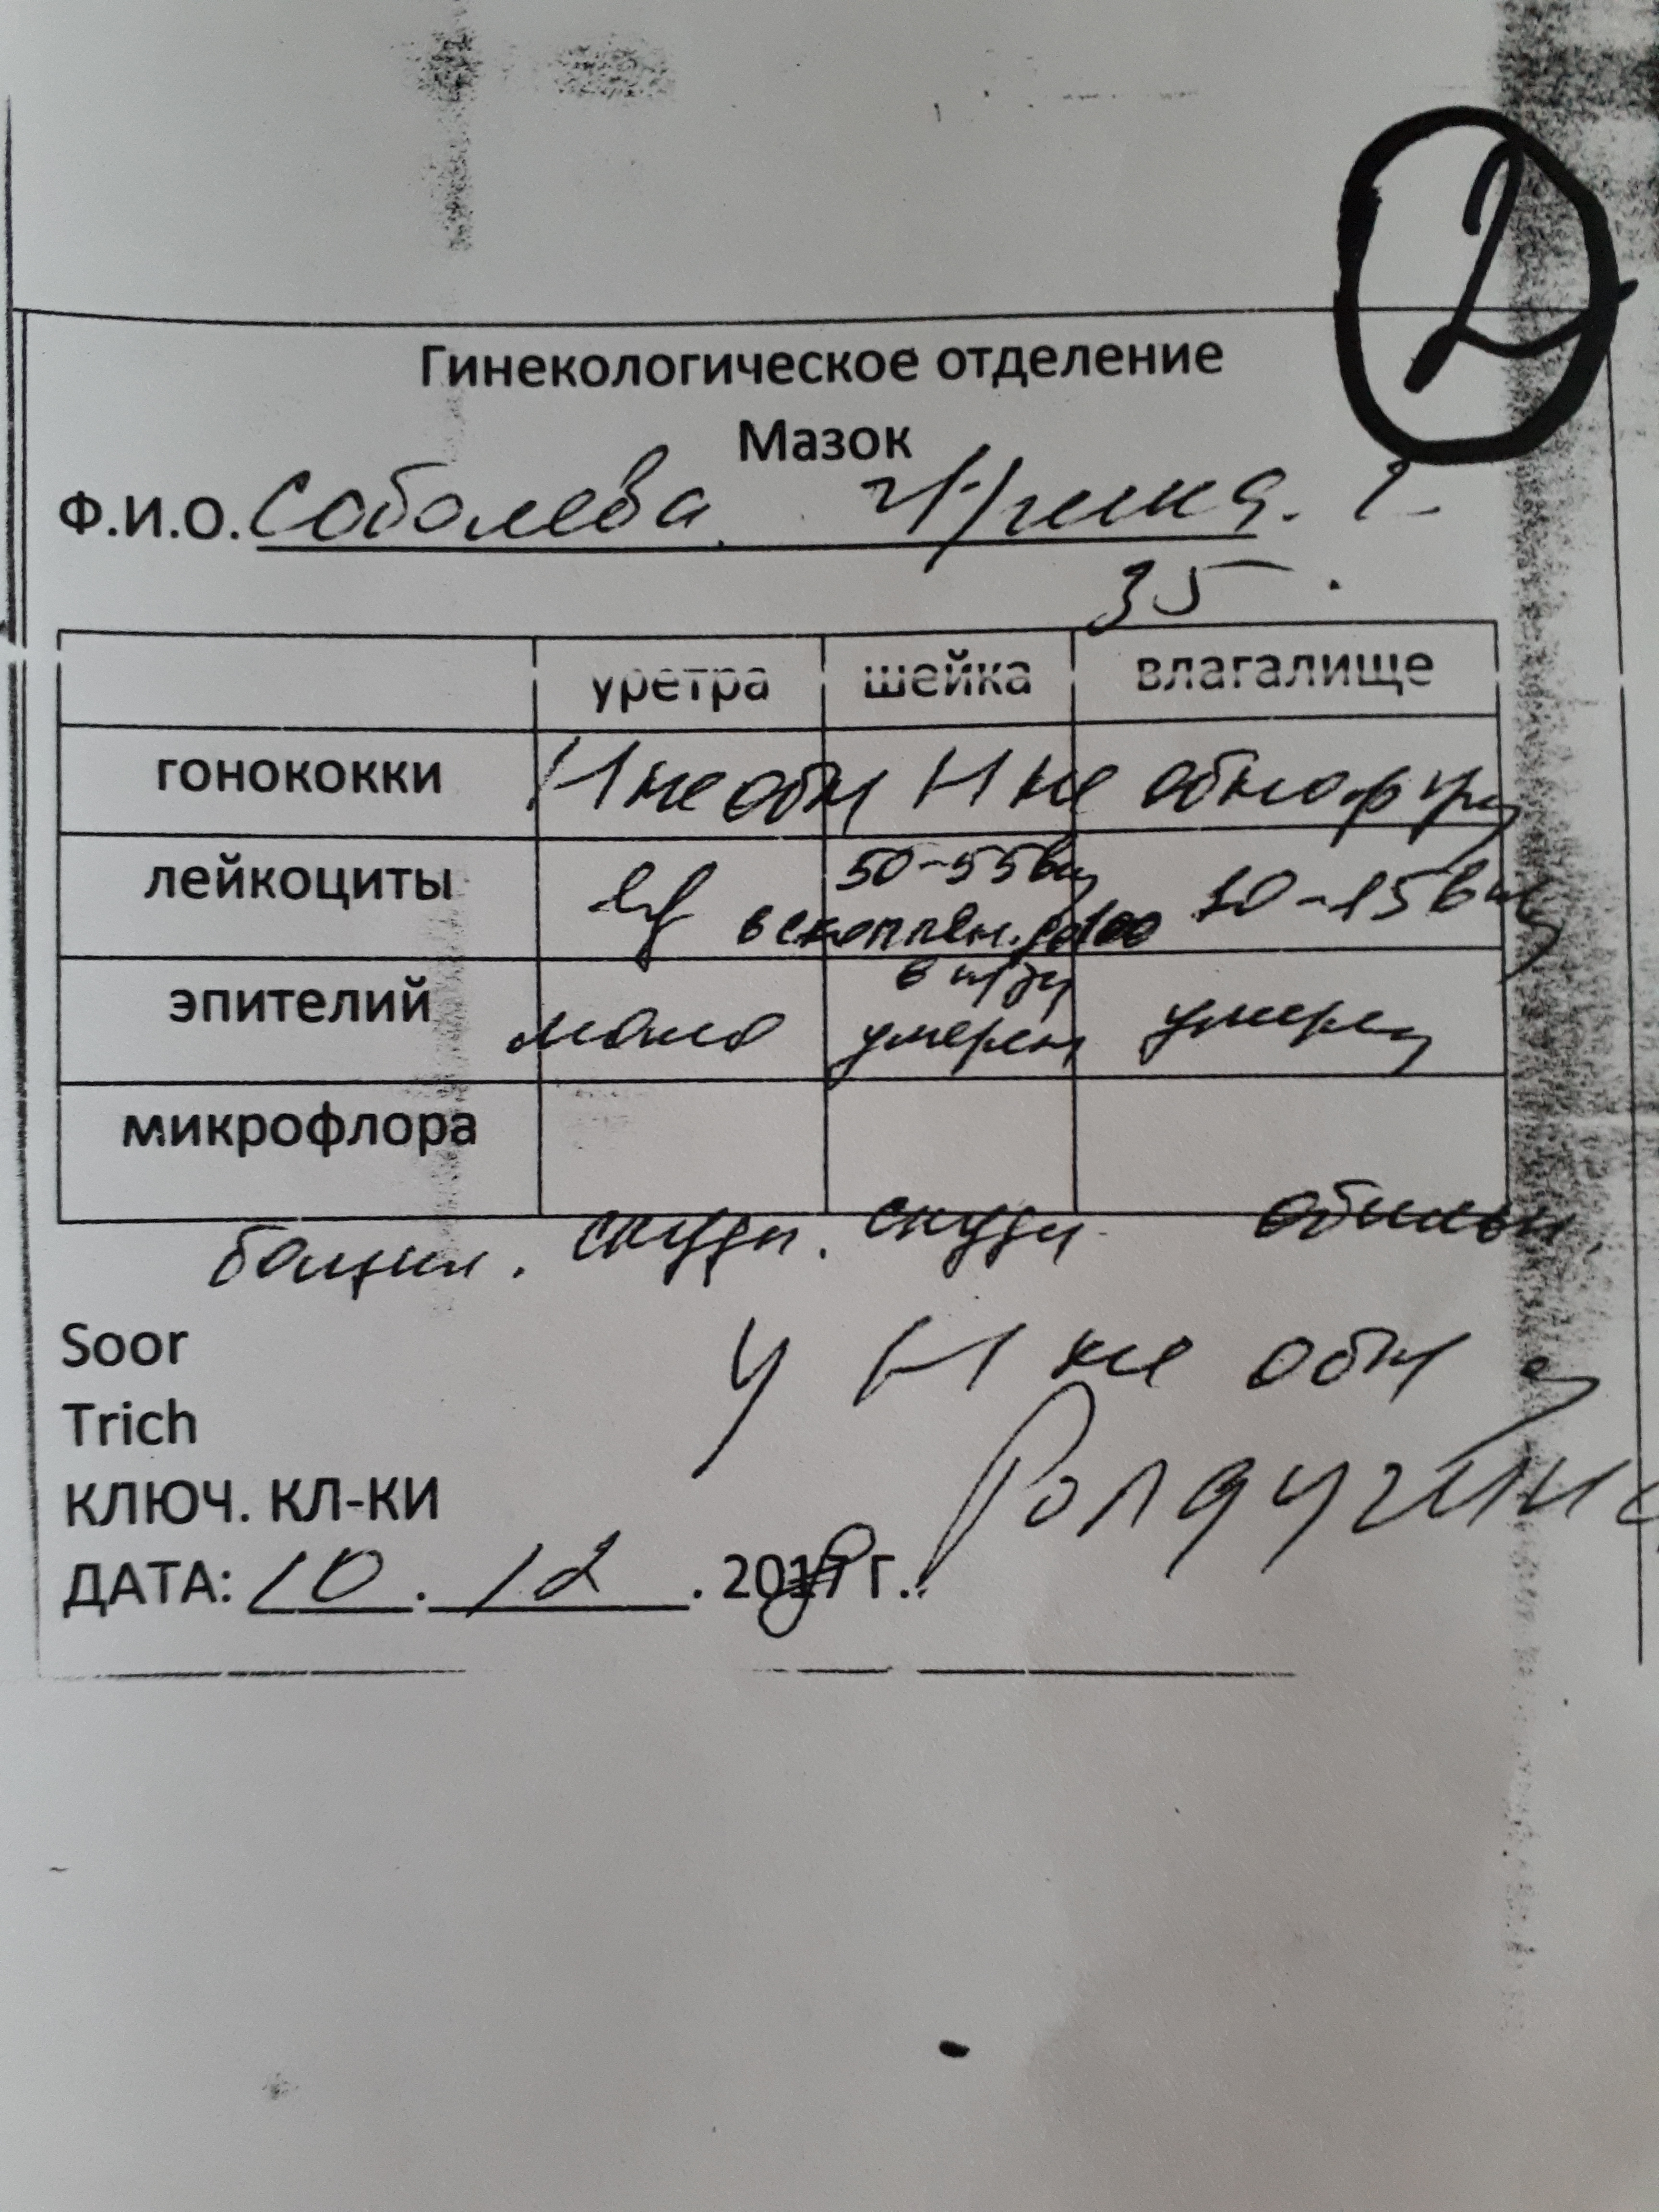 2
Гинекологическое отделение
Мазок
Ф.И.О. Соболева Ирина. Г.
35
уретра шейка влагалище
гонококки Н не обн Н не обнаруж
лейкоциты 50-55 в 10-15 в
в скоплен. до 100
в п/зр
эпителий мало умерен умерен
микрофлора
бацил. скудн. скудн обильн.
Soor Н не обн
Trich
КЛЮЧ. КЛ-КИ Болдугина
ДАТА: 10.12.20 г.